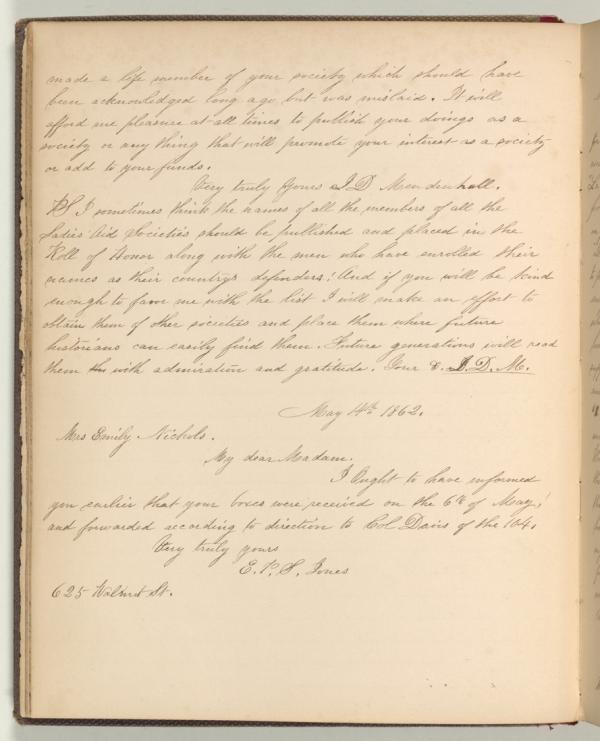 made a life member of your society which should have
been acknowledged long ago but was mislaid. It will
afford me pleasure at all times to publish your doings as a
society or any thing that will promote your interest as a society
or add to your funds.
Very truly Yours J. D. Mendenhall.
PS I sometimes think the names of all the members of all the
Ladies Aid Societies should be published and placed in the
Roll of Honor along with the men who have enrolled their
names as their country's defenders! And if you will be kind
enough to favor me with the list I will make an effort to
obtain them of other societies and place them where future
historians can easily find them. Future generations will read
them with admiration and gratitude. Your &. J. D. M.
May 14th 1862.
Mrs Emily Nichols.
My dear Madam.
I Ought to have informed
you earlier that your boxes were received on the 6th of May,
and forwarded according to direction to Col Davis of the 104.
Very truly yours
E. P. S. Jones
625 Walnut St.